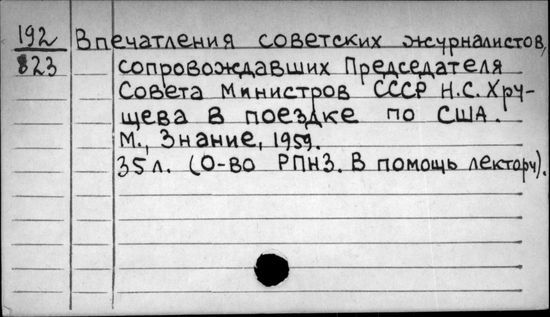 192 Впечатления советских журналистов,
823 сопровождавших Председателя
Совета Министров СССР Н.С. Хру-
щева в поездке по США.
М., Знание, 1959.
35л. (О-во РПНЗ. В помощь лектору).